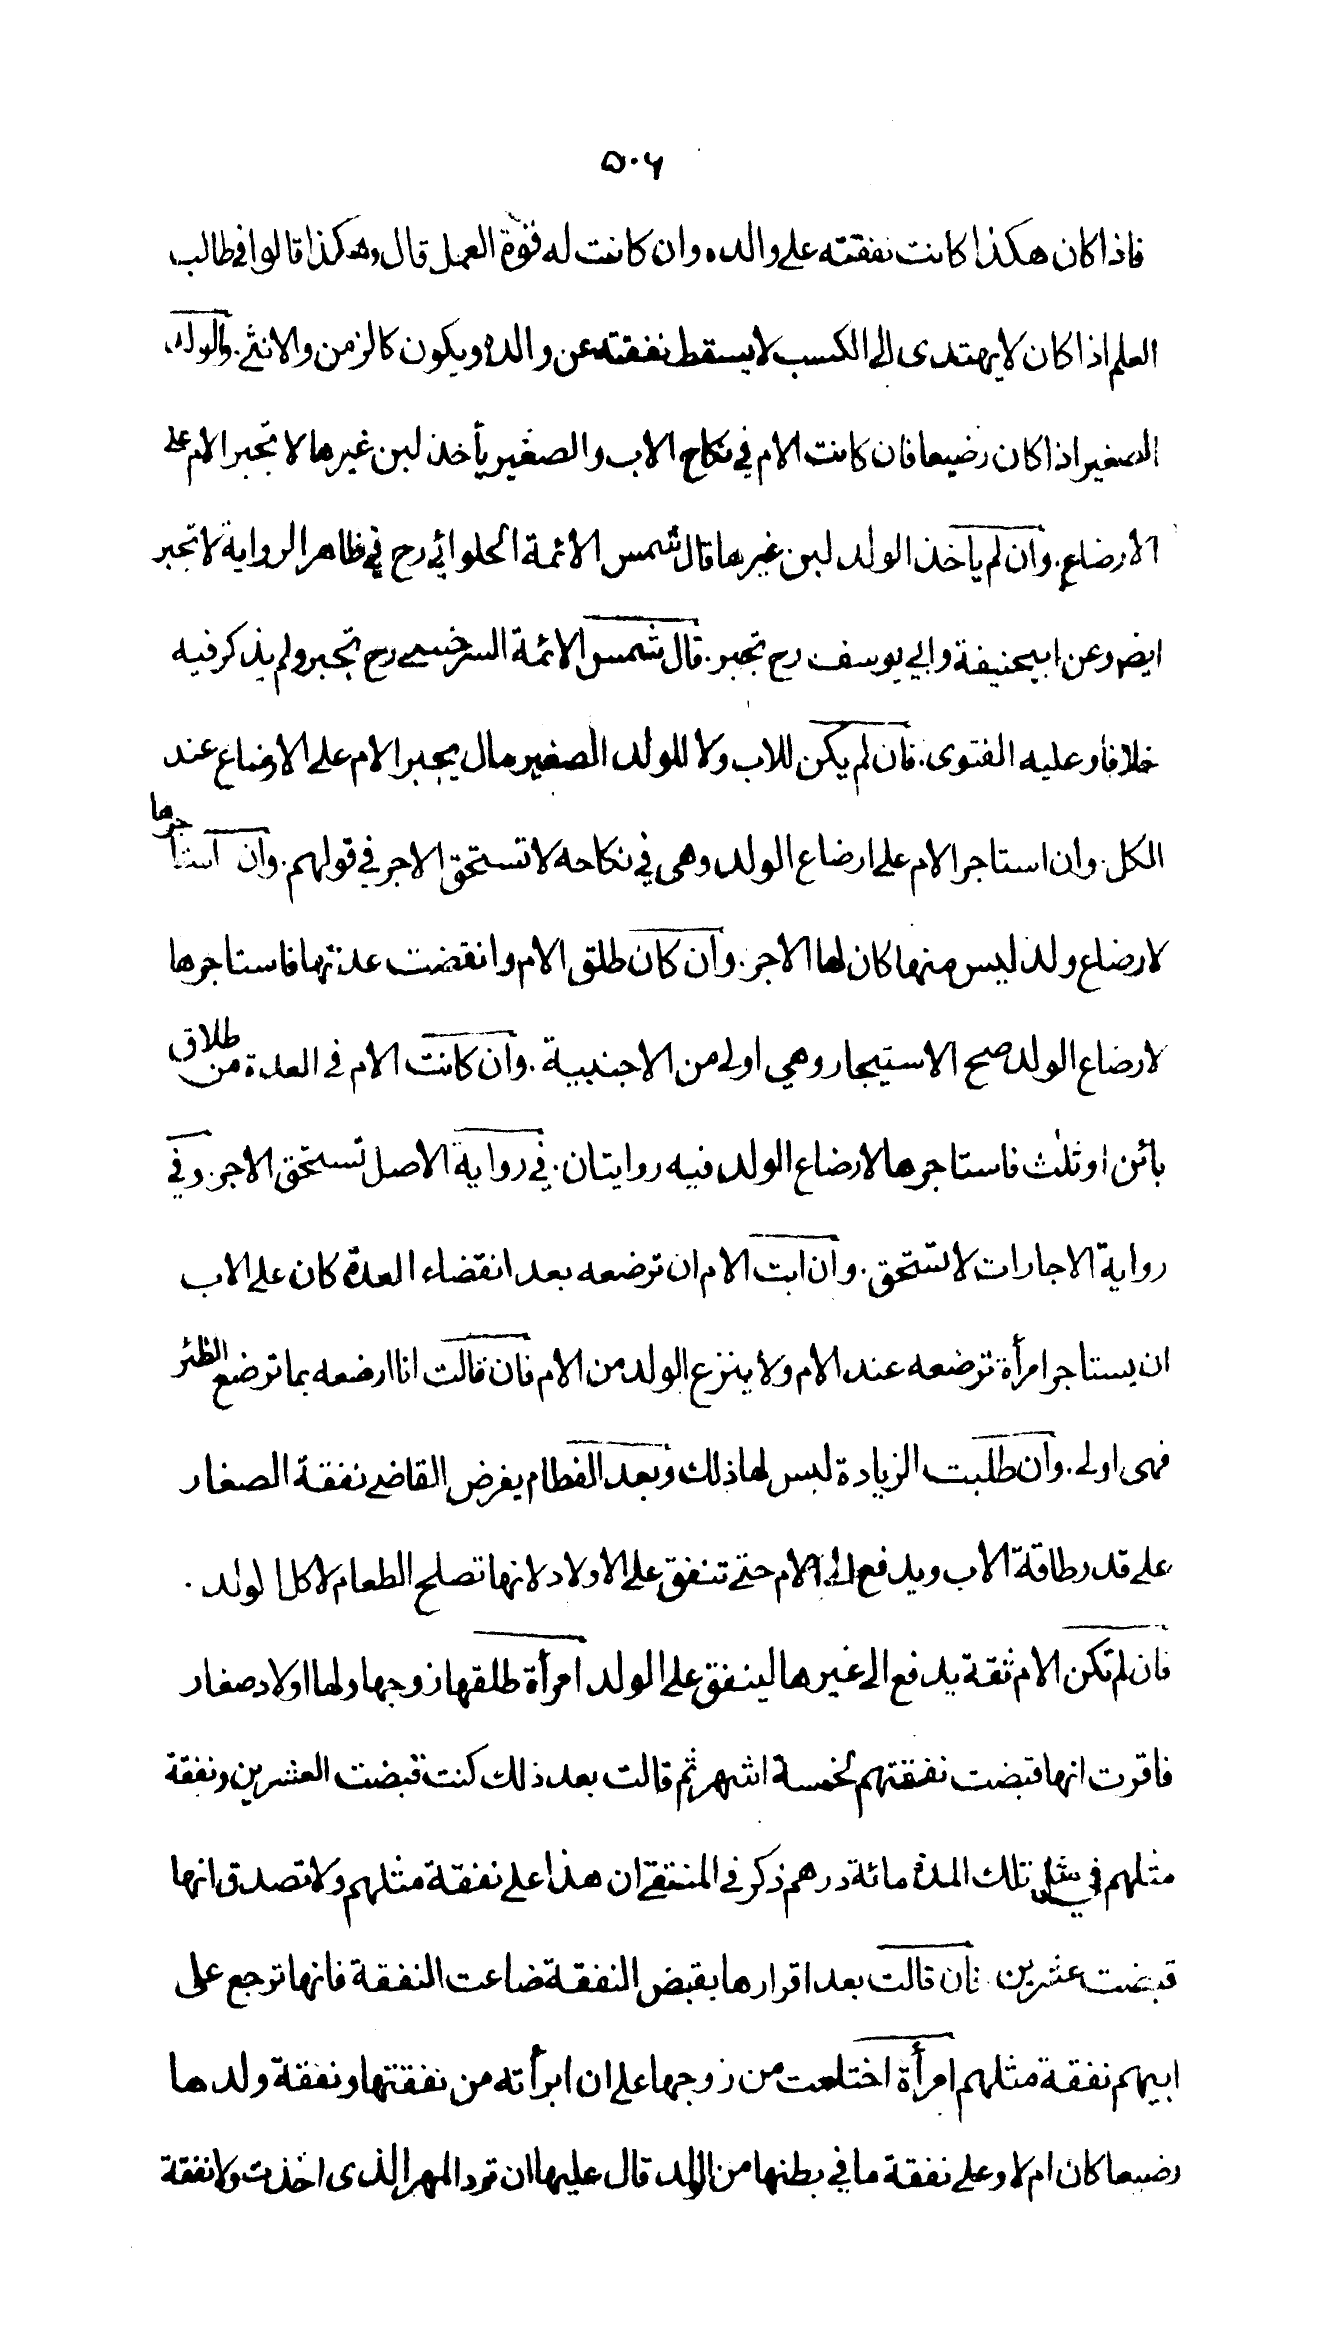 ۵۰۶
فاذا كان هكذا كانت نفقته على والده وان كانت له قوة العمل قال وهكذا قالوا في طالب
العلم اذا كان لا يهتدى الى الكسب لا يسقط نفقته عن والده ويكون كالزمن والانثى . والولد
الصغير اذا كان رضيعا فان كانت الام في نكاح الاب والصغير يأخذ لبن غيرها لا تجبر الام على
الارضاع . وان لم يأخذ الولد لبن غيرها قال شمس الائمة الحلوائي رح في ظاهر الرواية لا تجبر
ايضا وعن ابيحنيفة وابي يوسف رح تجبر . قال شمس الائمة السرخسي رح تجبر ولم يذكر فيه
خلافا وعليه الفتوى . فان لم يكن للاب ولا للولد الصغير مال يجبر الام على الارضاع عند
الكل . وان استاجر الام على ارضاع الولد وهى في نكاحه لا تستحق الاجر في قولهم . وان استأجرها
لارضاع ولد ليس منها كان لها الاجر . وان كان طلق الام وانقضت عدتها فاستاجرها
لارضاع الولد صح الاستيجار وهي اولى من الاجنبية . وان كانت الام في العدة من طلاق
بائن او ثلث فاستاجرها لارضاع الولد فيه روايتان . في رواية الاصل تستحق الاجر . وفي
رواية الاجارات لا تستحق . وان ابت الام ان ترضعه بعد انقضاء العدة كان على الاب
ان يستاجر امرأة ترضعه عند الام ولا ينزع الولد من الام فان قالت انا ارضعه بما ترضع الظئر
فهى اولى . وان طلبت الزيادة ليس لها ذلك وبعد الفطام يفرض القاضي نفقة الصغار
على قدر طاقة الاب ويدفع الى الام حتى تنفق على الاولاد لانها تصلح الطعام لاكل الولد .
فان لم تكن الام ثقة يدفع الى غيرها لينفق على الولد امرأة طلقها زوجها ولها اولاد صغار
فاقرت انها قبضت نفقتهم لخمسة اشهر ثم قالت بعد ذلك كنت قبضت العشرين ونفقة
مثلهم في مثل تلك المدة مائة درهم ذكر في المنتقى ان هذا على نفقة مثلهم ولا تصدق انها
قبضت عشرين . فان قالت بعد اقرارها بقبض النفقة ضاعت النفقة فانها ترجع على
ابيهم نفقة مثلهم امرأة اختلعت من زوجها على ان ابرأته من نفقتها ونفقة ولدها
رضيعا كان ام لا وعلى نفقة ما في بطنها من الولد قال عليها ان ترد المهر الذى اخذت ولا نفقة